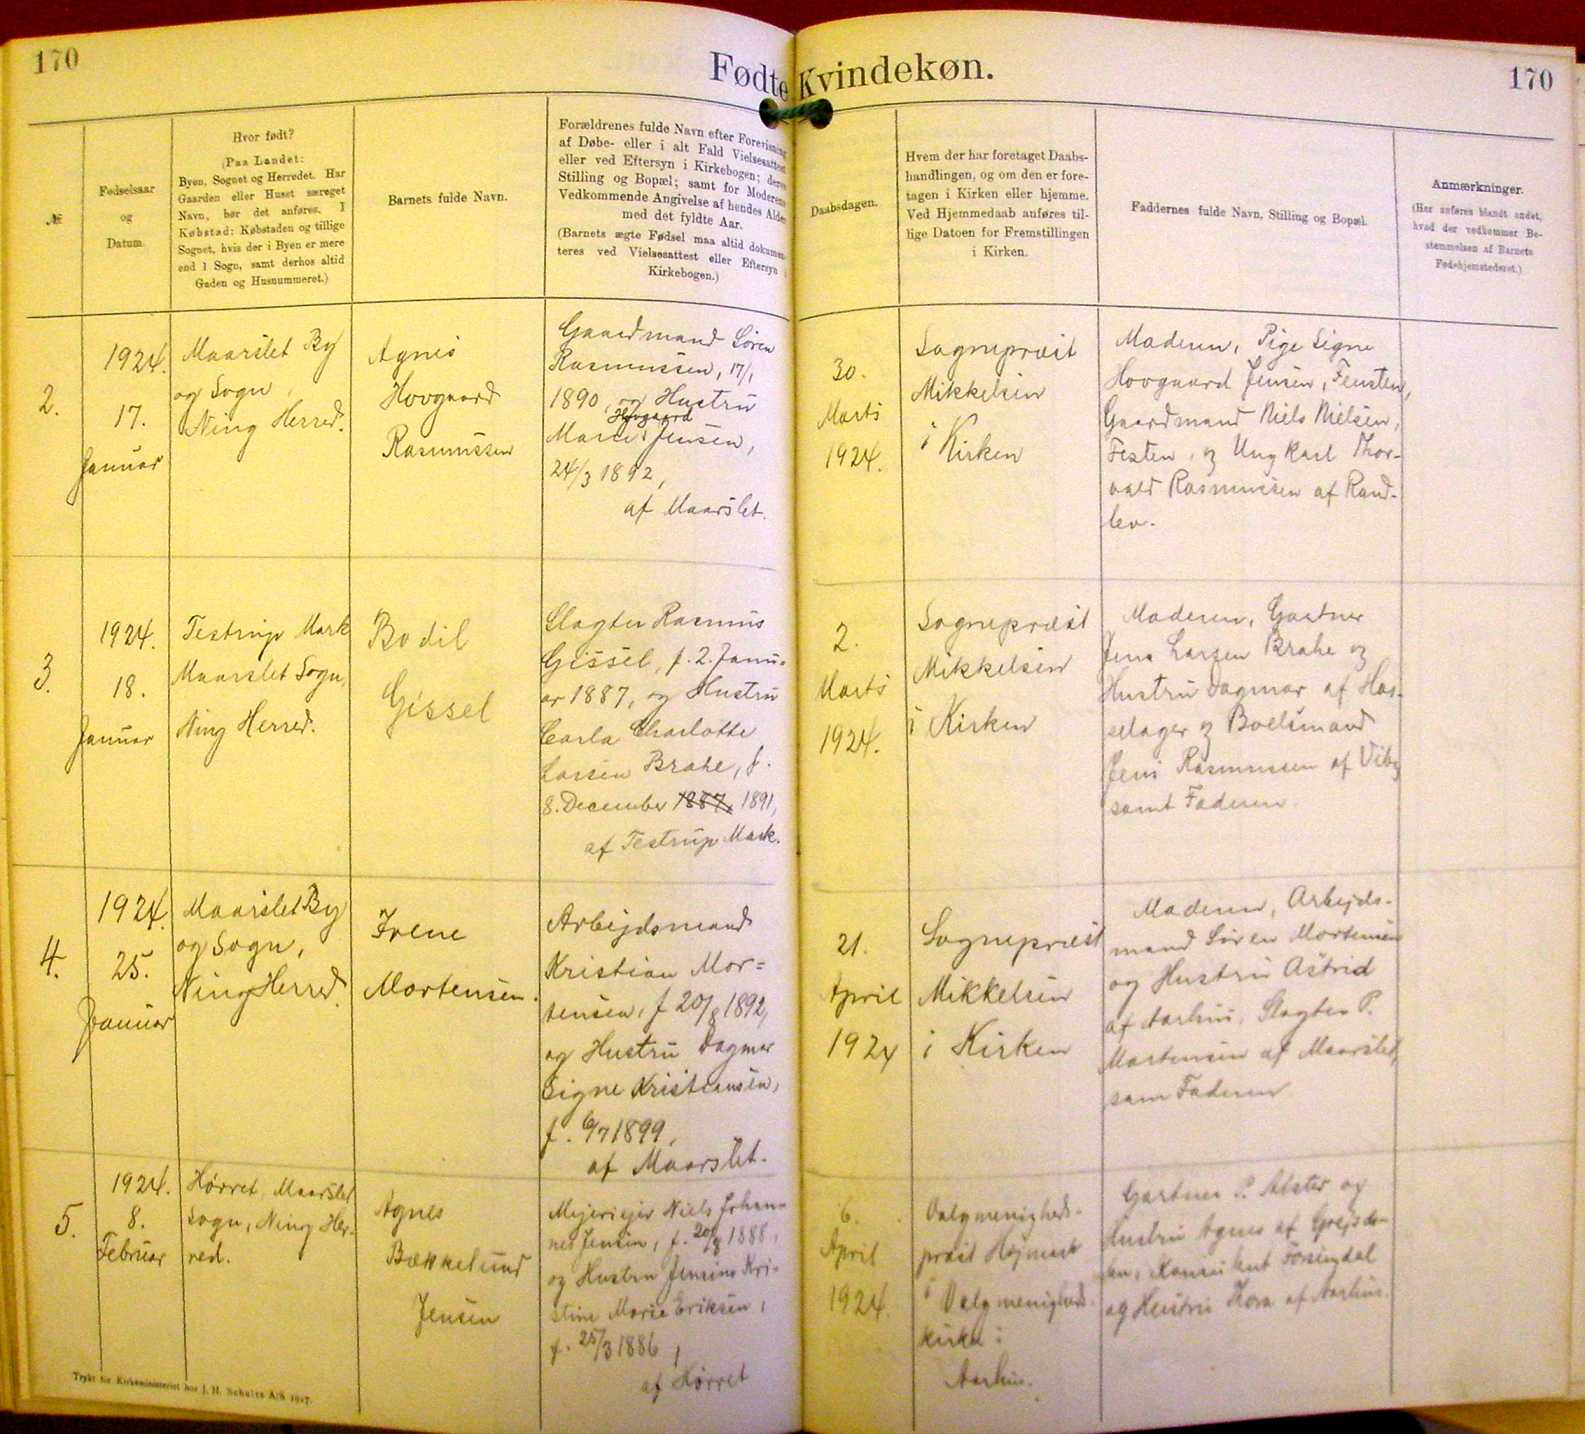 170
Fødte Kvindekøn.
170
№
Fødselsaar
og
Datum.
Hvor født?
(Paa Landet:
Byen, Sognet og Herredet. Har
Gaarden eller Huset særeget
Navn, bør det anføres. I
Købstad: Købstaden og tillige
Sognet, hvis der i Byen er mere
end 1 Sogn, samt derhos altid
Gaden og Husnummeret.)
Barnets fulde Navn.
Forældrenes fulde Navn efter Forevisning
af Døbe- eller i alt Fald Vielsesattest
eller ved Eftersyn i Kirkebogen; deres
Stilling og Bopæl; samt for Moderens
Vedkommende Angivelse af hendes Alder
med det fyldte Aar.
(Barnets ægte Fødsel maa altid dokumen-
teres ved Vielsesattest eller Eftersyn i
Kirkebogen.)
Daabsdagen.
Hvem der har foretaget Daabs-
handlingen, og om den er fore-
tagen i Kirken eller hjemme.
Ved Hjemmedaab anføres til-
lige Datoen for Fremstillingen
i Kirken.
Faddernes fulde Navn, Stilling og Bopæl.
Anmærkninger.
(Her anføres blandt andet,
hvad der vedkommer Be-
stemmelsen af Barnets
Fødehjemstederet.)
2.
1924.
17.
Januar
Maarslet By
og Sogn,
Ning Herred.
Agnes
Hovgaard
Rasmussen
Gaardmand Søren
Rasmussen, 17/1
1890, og Hustru
Hovgaard
Marie Jensen,
24/3 1892,
af Maarslet.
30.
Marts
1924.
Sognepræst
Mikkelsen
i Kirken
Moderen, Pige Signe
Hovgaard Jensen, Fensten,
Gaardmand Niels Nielsen,
Festen, og Ungkarl Thor-
vald Rasmussen af Rand-
lev.
3.
1924.
18.
Januar
Testrup Mark
Maarslet Sogn,
Ning Herred.
Bodil
Gissel
Slagter Rasmus
Gissel, f. 2. Janu-
ar 1887, og Hustru
Carla Charlotte
Larsen Brahe, f.
8. December 1887, 1891,
af Testrup Mark.
2.
Marts
1924.
Sognepræst
Mikkelsen
i Kirken
Moderen, Gartner
Jens Larsen Brahe og
Hustru Dagmar af Has-
selager og Boelsmand
Jens Rasmussen af Viby
samt Faderen.
4.
1924.
25.
Januar
Maarslet By
og Sogn,
Ning Herred.
Irene
Mortensen.
Arbejdsmand
Kristian Mor=
tensen, f 20/8 1892,
og Hustru Dagmar
Signe Kristiansen,
f. 6/7 1899,
af Maarslet.
21.
April
1924
Sognepræst
Mikkelsen
i Kirken
Moderen, Arbejds-
mand Søren Mortensen
og Hustru Astrid
af Aarhus, Slagter P.
Mortensen af Maarslet,
sam Faderen
5.
1924.
8.
Februar
Hørret, Maarslet
Sogn, Ning Her-
red.
Agnes
Bækkelund
Jensen
Mejeriejer Niels Johan-
nes Jensen, f. 20/8 1888,
og Hustru Jensine Kri-
stine Marie Eriksen,
f. 25/3 1886,
af Hørret
6.
April
1924.
Valgmenigheds-
præst Højmark
i Valgmenigheds-
kirke i
Aarhus.
Gartner P. og
Hustru Agnes af
Konsulent
og Hustru Thora af Aarhus.
Trykt for Kirkeministeriet hos J. H. Schultz A/S 1917.